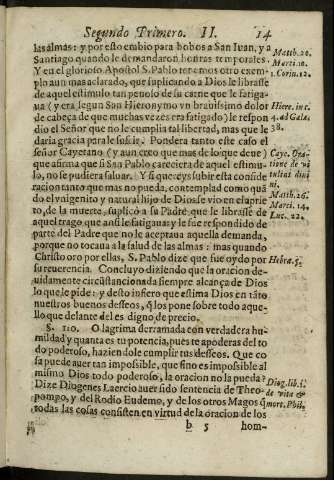 Segundo Primero. II. 14
las almas: y por esto embio para bobos a San Iuan, y a
Santiago quando le demandaron honras temporales
Y en el glorioso Apostol S. Pablo tenemos otro exem-
plo aun mas aclarado, que suplicando a Dios le librasse
de aquel estimulo tan penoso de su carne que le fatiga-
ua (y era segun San Hieronymo vn brauissimo dolor
de cabeça de que muchas vezes era fatigado) le respon
dio el Señor que no le cumplia tal libertad, mas que le
daria gracia para le sufrir. Pondera tanto este caso el
señor Cayetano (y aun creo que mas de lo que deue)
que afirma que si San Pablo careciera de aquel estimu-
lo, no se pudiera saluar. Y si quereys subir esta conside
racion tanto que mas no pueda, contemplad como quã
do el vnigenito y natural hijo de Dios se vio en el aprie
to, de la muerte, suplico a su Padre que le librasse de
aquel trago que ansi le fatigaua; y le fue respondido de
parte del Padre que no le aceptaua aquella demanda,
porque no tocaua a la salud de las almas: mas quando
Christo oro por ellas, S. Pablo dize que fue oydo por
su reuerencia. Concluyo diziendo que la oracion de-
uidamente circũstancionada siempre alcança de Dios
lo que le pide: y desto infiero que estima Dios en tãto
nuestros buenos desseos, q̃ los pone sobre todo aque-
llo que delante del es digno de precio.
§. 110. O lagrima derramada con verdadera hu-
mildad y quanta es tu potencia, pues te apoderas del to
do poderoso, hazien dole cumplir tus desseos. Que co
sa puede auer tan impossible, que si no es impossible al
mismo Dios todo poderoso, la oracion no la pueda?
Dize Diogenes Laercio auer sido sentencia de Theo-
pompo, y del Rodio Eudemo, y de los otros Magos q̃
todas las cosas consisten en virtud de la oracion de los
b 5 hom-
Matth. 20.
Marci. 10.
1. Corin. 12.
Hiere. in c.
4. ad Gala.
38.
Caye. Ora-
tione de vi
Matth. 26.
Marci. 14.
Luc. 22.
Hebræ. 5.
Diog. lib. 1.
de vita &
mort. Phil.